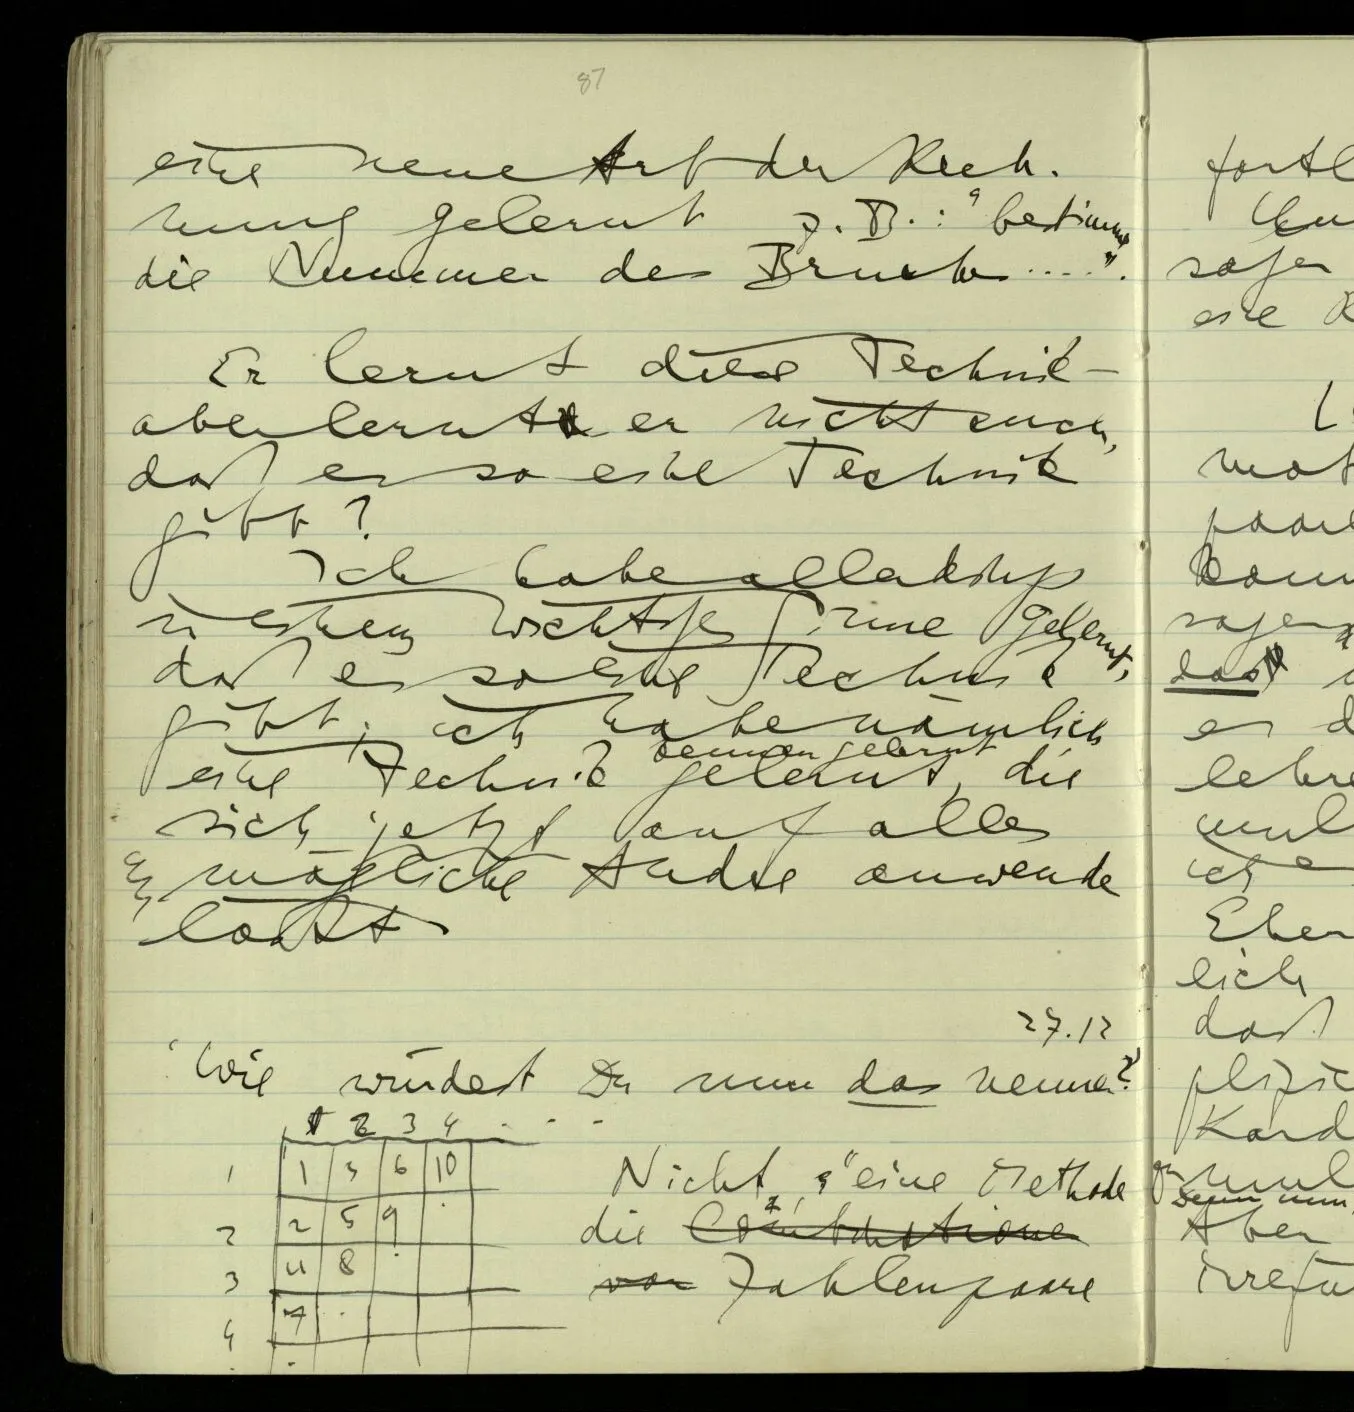 87
eine neue Art der Rech-
nung gelernt z.B.: "bestimme
die Nummer des Bruchs ....".
Er lernt diese Technik –
aber lernt er nicht auch,
daß es so eine Technik
gibt?
Ich habe allerdings
in einem wichtigen Sinne gelernt,
daß es so eine Technik
gibt; ich habe nämlich
kennen gelernt
eine Technik gelernt, die
sich jetzt auf alles
mögliche Andre anwenden
läßt.
27.12
'Wie würdest Du nun das nennen?
1 2 3 4 . . .
1 1 3 6 10
2 2 5 9 .
3 4 8 .
4 7 .
Nicht, "eine Methode
die
von Zahlenpaare
fortl
sagen
eine
mat
paare
sagen
das
er d
lehre
ich
Eben
lich
daß
plizie
Kard
wenn nun,
Aber
irrefü